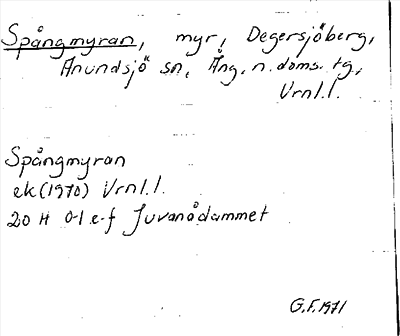 Spångmyran, myr, Degersjöberg,
Anundsjö sn, Ång. n. doms. tg,
Vrnl.l.
Spångmyran
ek (1970) Vrnl.l.
20 H 0-1 e-f Juvanådammet
G.F. 1971